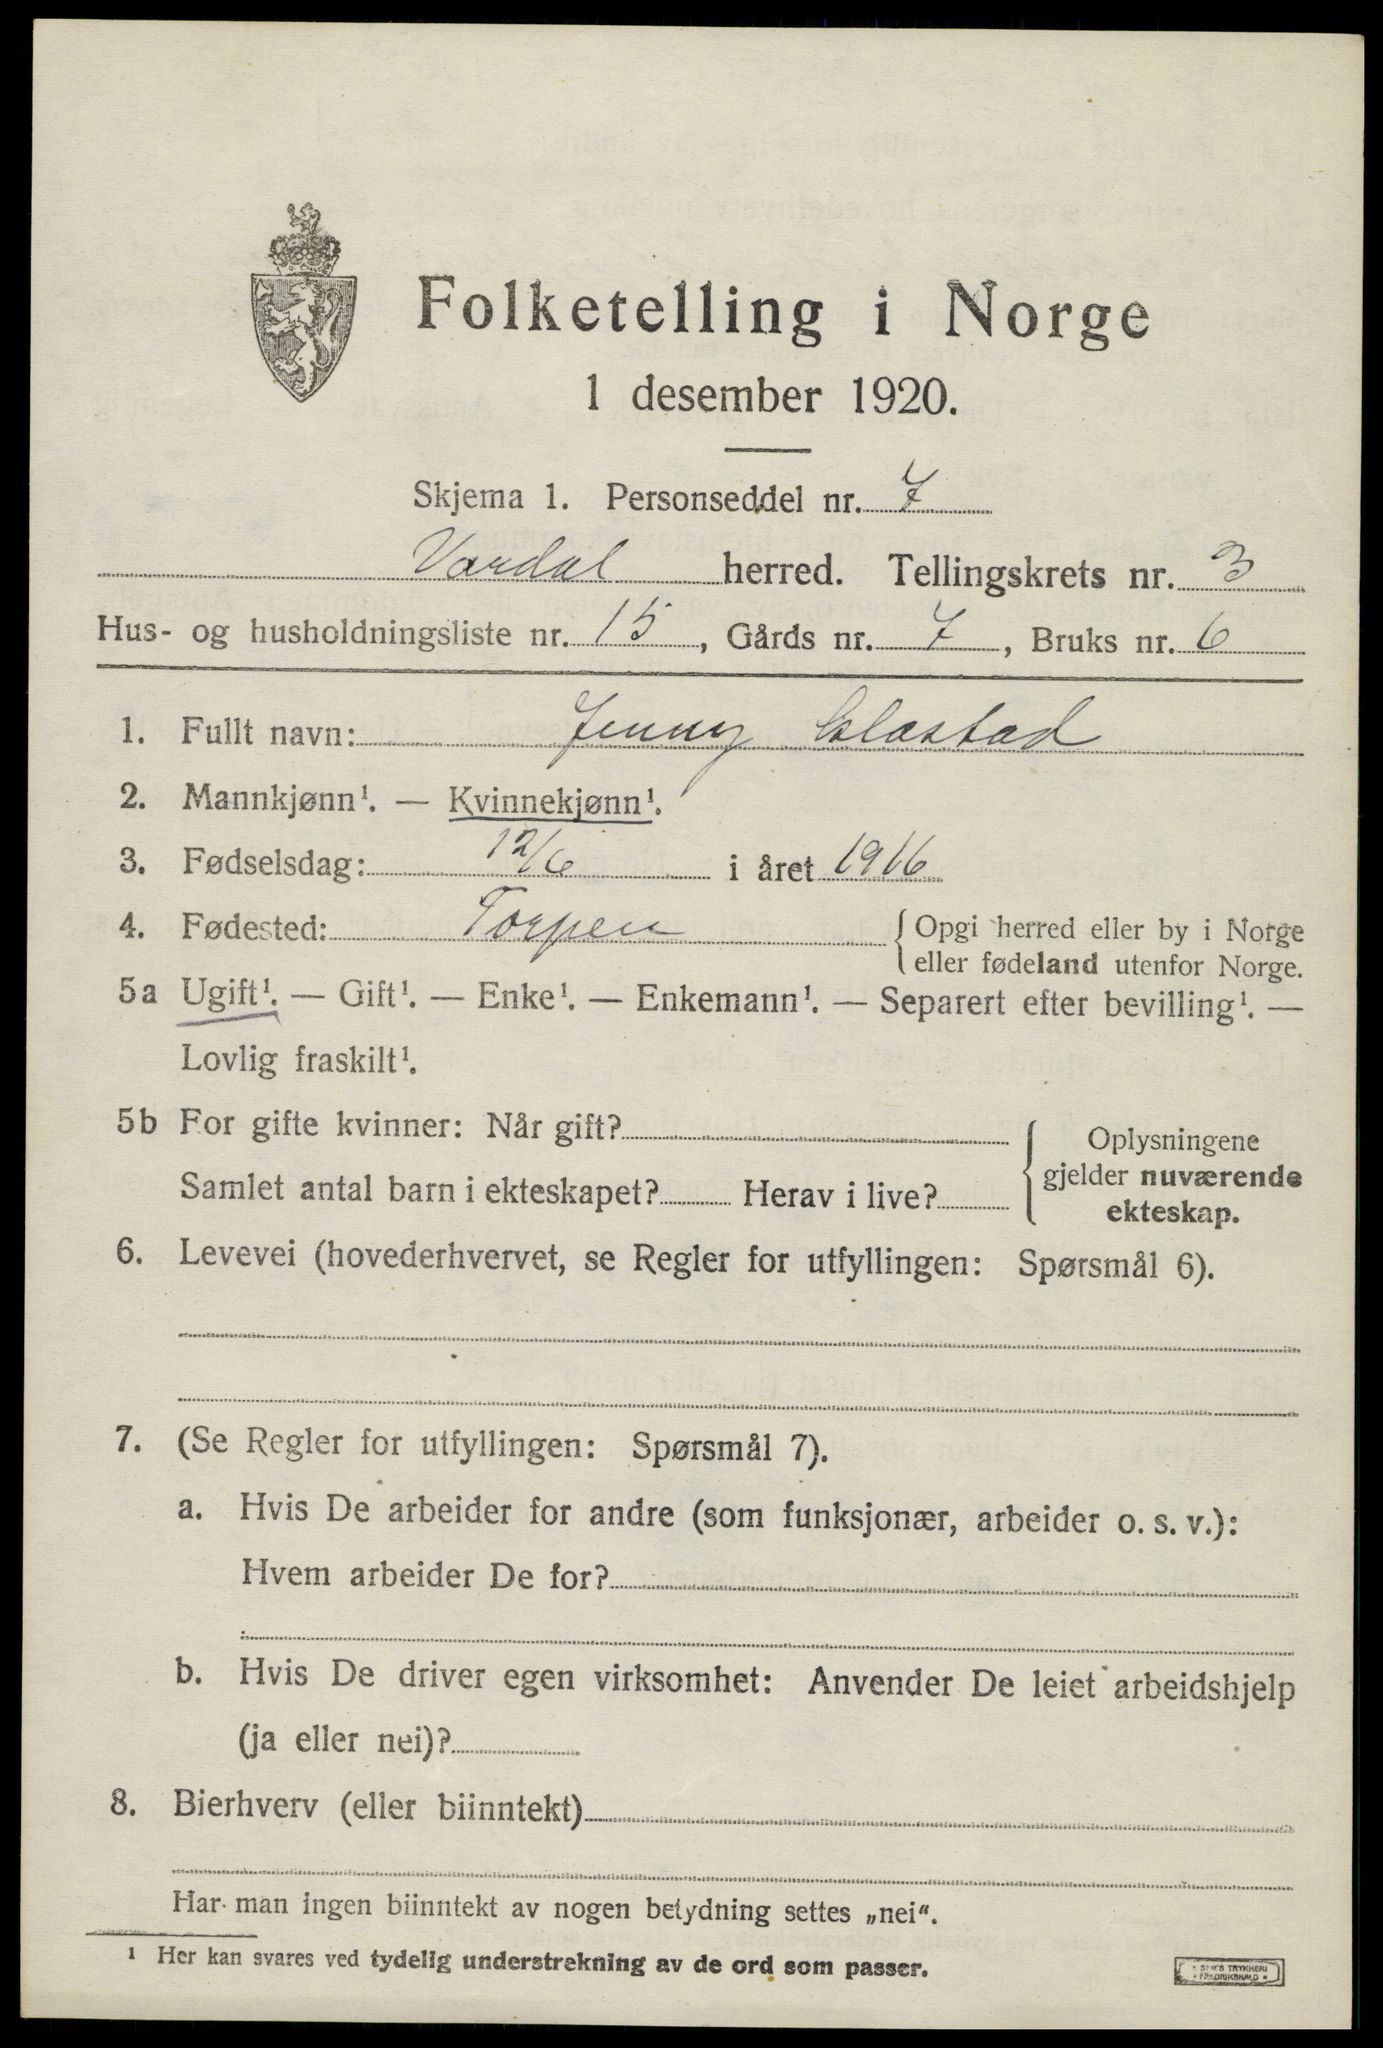 Folketelling i Norge
1 desember 1920.
Skjema 1. Personseddel nr. 7
Vardal herred. Tellingskrets nr. 3
Hus- og husholdningsliste nr. 15, Gårds nr. 7, Bruks nr. 6
1. Fullt navn: Jenny
2. Mannkjønn¹. — Kvinnekjønn¹.
3. Fødselsdag: 12/6 i året 1916
4. Fødested: Torpen { Opgi herred eller by i Norge
eller fødeland utenfor Norge.
5a Ugift¹. — Gift¹. — Enke¹. — Enkemann¹. — Separert efter bevilling¹. —
Lovlig fraskilt¹.
5b For gifte kvinner: Når gift? { Oplysningene
gjelder nuværende
Samlet antal barn i ekteskapet? Herav i live?
ekteskap.
6. Levevei (hovederhvervet, se Regler for utfyllingen: Spørsmål 6).
7. (Se Regler for utfyllingen: Spørsmål 7).
a. Hvis De arbeider for andre (som funksjonær, arbeider o. s. v.):
Hvem arbeider De for?
b. Hvis De driver egen virksomhet: Anvender De leiet arbeidshjelp
(ja eller nei)?
8. Bierhverv (eller biinntekt)
Har man ingen biinntekt av nogen betydning settes „nei“.
¹ Her kan svares ved tydelig understrekning av de ord som passer.
SEM'S TRYKKERI
FREDRIKSHALD